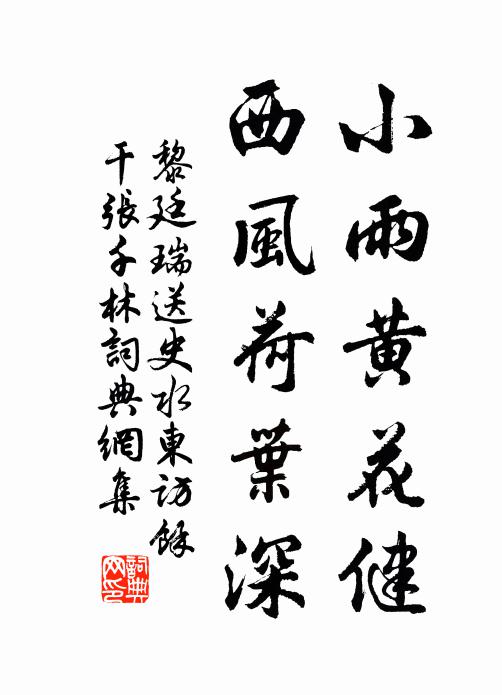 小雨黄花健
西風荷葉深
黎廷瑞送史水東訪餘
干張千林詞典網集
詞典
网印